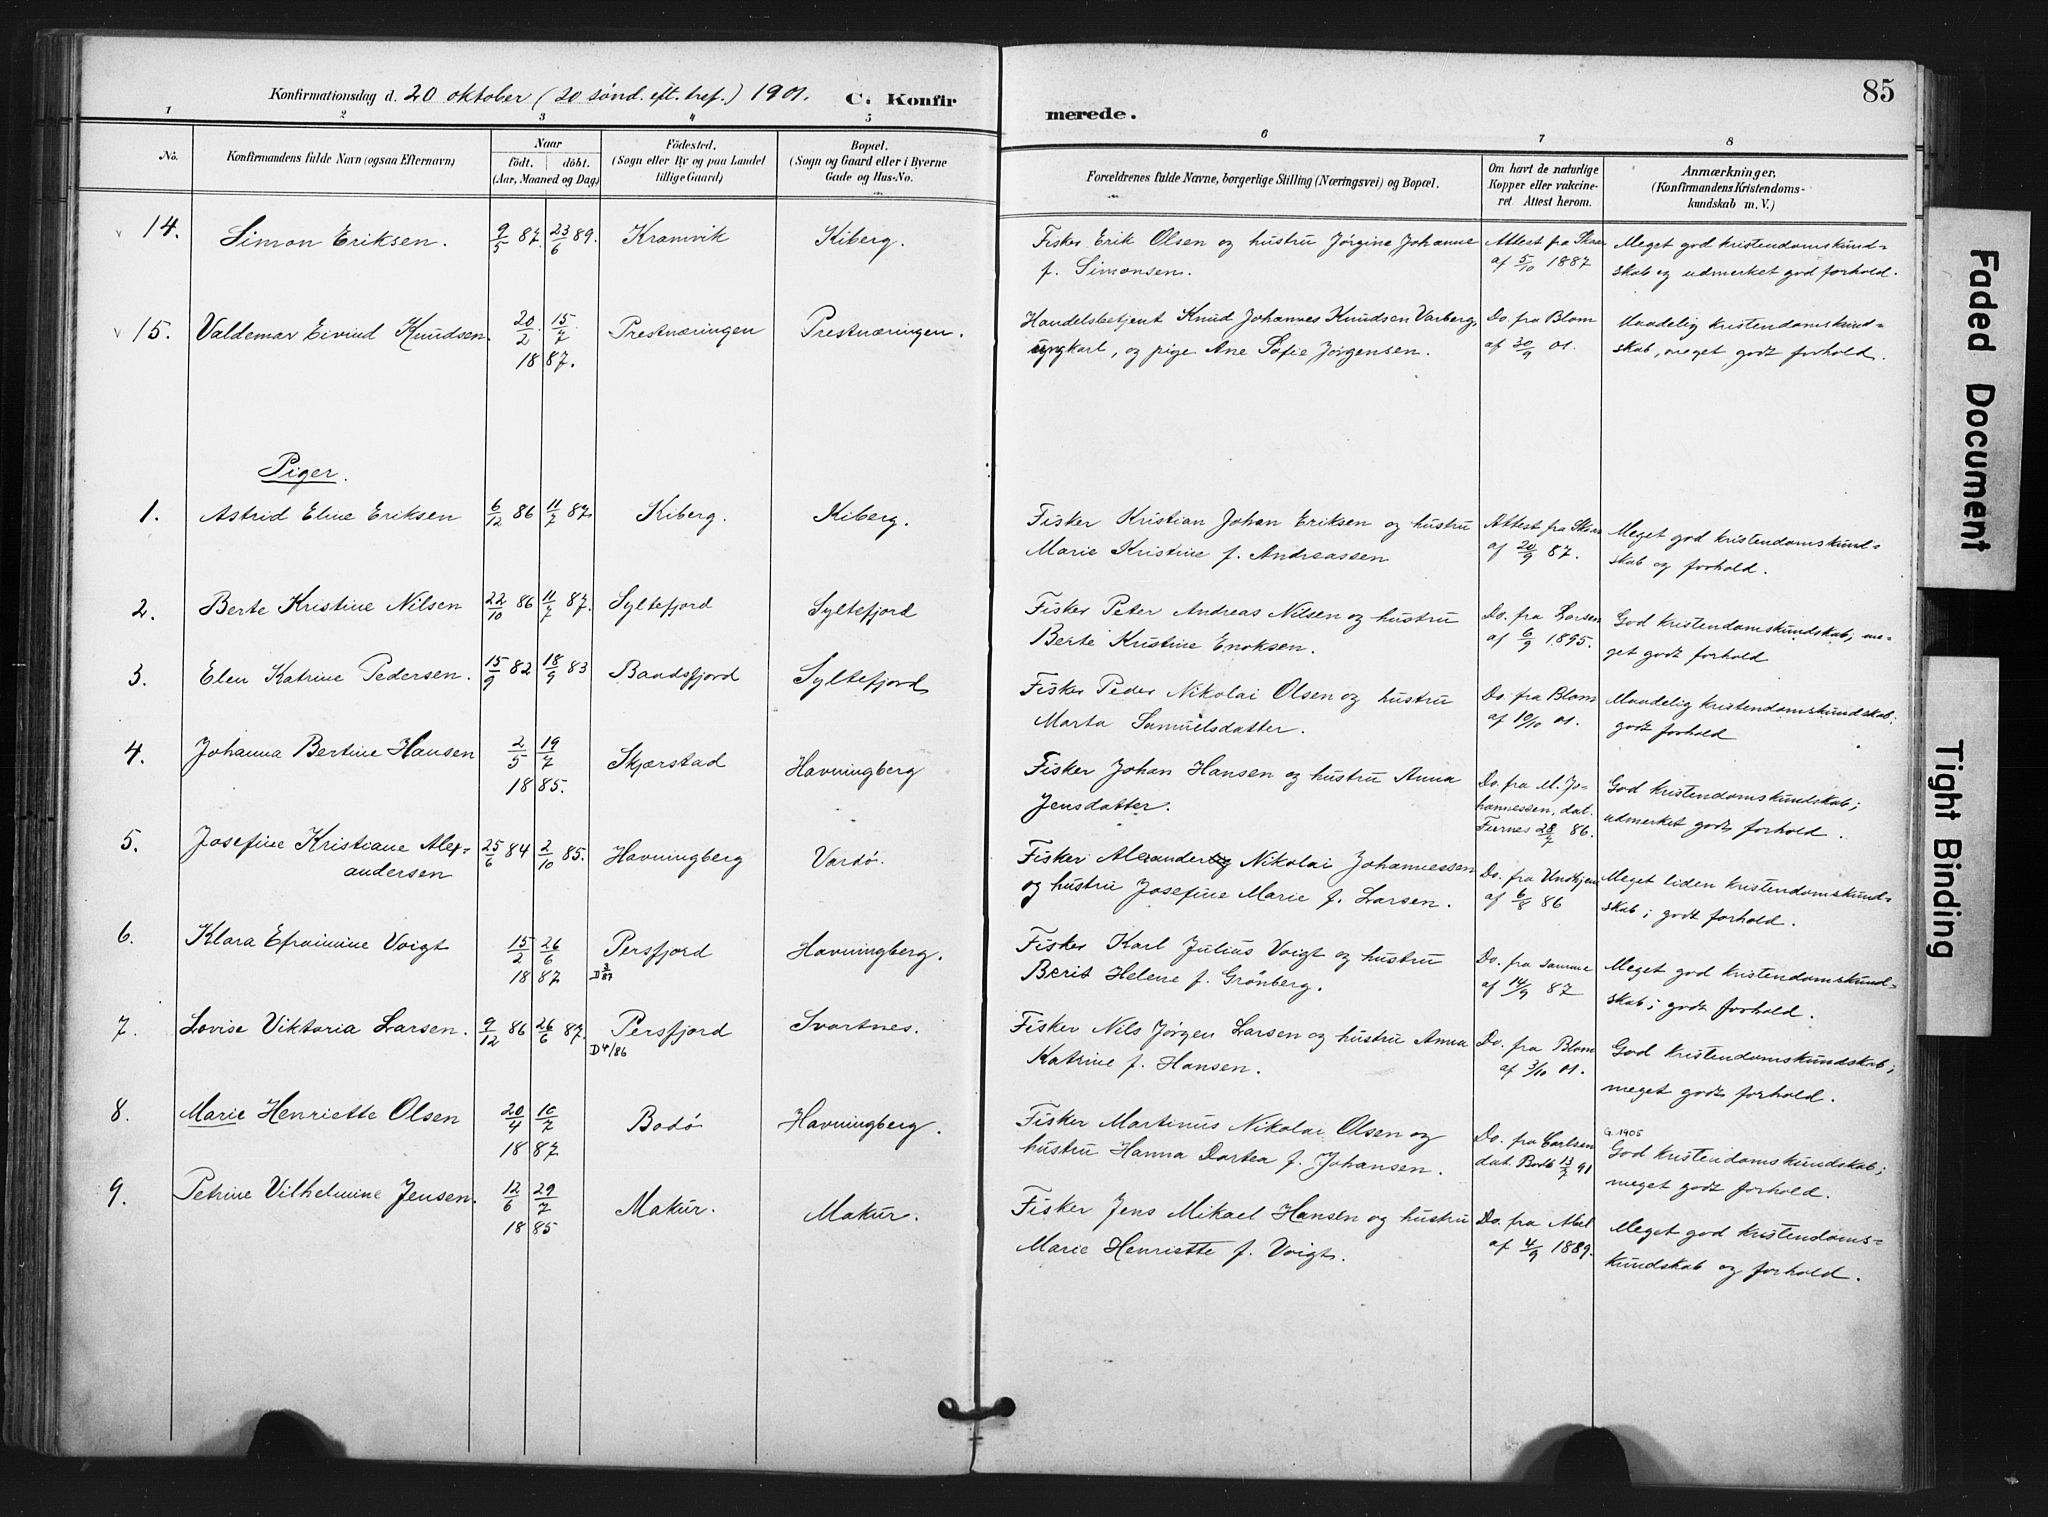 Konfirmationsdag d. 20 oktober (20 sönd. eft. tref.) 1901. C. Konfir
merede. 85
1 2 3 4 5 6 7 8
No. Konfirmandens fulde Navn (ogsaa Efternavn) Naar födt. döbt. (Aar, Maaned og Dag) Födested. (Sogn eller By og paa Landet tillige Gaard) Bopæl. (Sogn og Gaard eller i Byerne Gade og Hus-No. Forældrenes fulde Navne, borgerlige Stilling (Næringsvei) og Bopæl. Om havt de naturlige Kopper eller vakcineret. Attest herom. Anmærkninger. (Konfirmandens Kristendomskundskab m. V.)
14. Simon Eriksen. 9/5 87. 23/6 89. Kramvik Kiberg. Fisker Erik Olsen og hustru Jørgine Johanne Attest fra Skaar Meget god kristendomskund=
f. Simonsen. af 5/10 1887 skab og udmerket god forhold.
15. Valdemar Eivind Knudsen. 20/2 15/7 Prestnæringen Prestnæringen. Handelsbetjent Knud Johannes Knudsen Varberg, Do. fra Blom Maadelig kristendomskund=
18 87. ungkarl, og pige Ane Sofie Jørgensen. af 30/9 01. skab, meget godt forhold.
Piger.
1. Astrid Eline Eriksen 6/12 86 11/7 87. Kiberg. Kiberg. Fisker Kristian Johan Eriksen og hustru Attest fra Skaar Meget god kristendomskund=
Marie Kristine f. Andreassen af 20/9 87. skab og forhold.
2. Berte Kristine Nilsen 22/10 86 11/7 87. Syltefjord Syltefjord Fisker Peter Andreas Nilsen og hustru Do. fra Larsen God kristendomskundskab, me-
Berte Kristine Enoksen. af 6/9 1895. get godt forhold
3. Elen Katrine Pedersen. 15/9 82 18/9 83 Baadsfjord Syltefjord Fisker Peder Nikolai Olsen og hustru Do. fra Blom Maadelig kristendomskundskab;
Marta Samuelsdatter. af 10/10 01. godt forhold
4. Johanna Bertine Hansen 2/5 19/7 Skjærstad Havningberg Fisker Johan Hansen og hustru Anna Do. fra M. Jo- God kristendomskundskab;
18 85. Jensdatter. hannessen, dat. udmerket godt forhold.
Furnes 28/7 86.
5. Josefine Kristiane Alex- 25/6 84 2/10 85. Havningberg Vardø. Fisker Alexander Nikolai Johannessen Do. fra Undhjem Meget liden kristendomskund=
andersen og hustru Josefine Marie f. Larsen. af 6/8 86 skab; godt forhold.
6. Klara Efraimine Voigt 15/2 26/6 Persfjord Havningberg. Fisker Karl Julius Voigt og hustru Do. fra samme Meget god kristendomskund=
18 87 D 3/87 Berit Helene f. Grønberg. af 14/9 87 skab; godt forhold.
7. Lovise Viktoria Larsen. 9/12 86 26/6 87. Persfjord Svartnes. Fisker Nils Jørgen Larsen og hustru Anna Do. fra Blom God kristendomskundskab;
D 4/86 Katrine f. Hansen. af 3/10 01. meget godt forhold.
8. Marie Henriette Olsen 20/4 10/7 Bodø Havningberg. Fisker Martinus Nikolai Olsen og Do. fra Carlsen G. 1905 God kristendomskundskab;
18 87 hustru Hanna Dortea f. Johansen. dat. Bodö 13/7 91 meget godt forhold.
9. Petrine Vilhelmine Jensen. 12/6 29/7 Makur. Makur. Fisker Jens Mikael Hansen og hustru Do. fra Abel Meget god kristendoms=
18 85 Marie Henriette f. Voigt. af 4/9 1889. kundskab og forhold.
Faded Document
Tight Binding